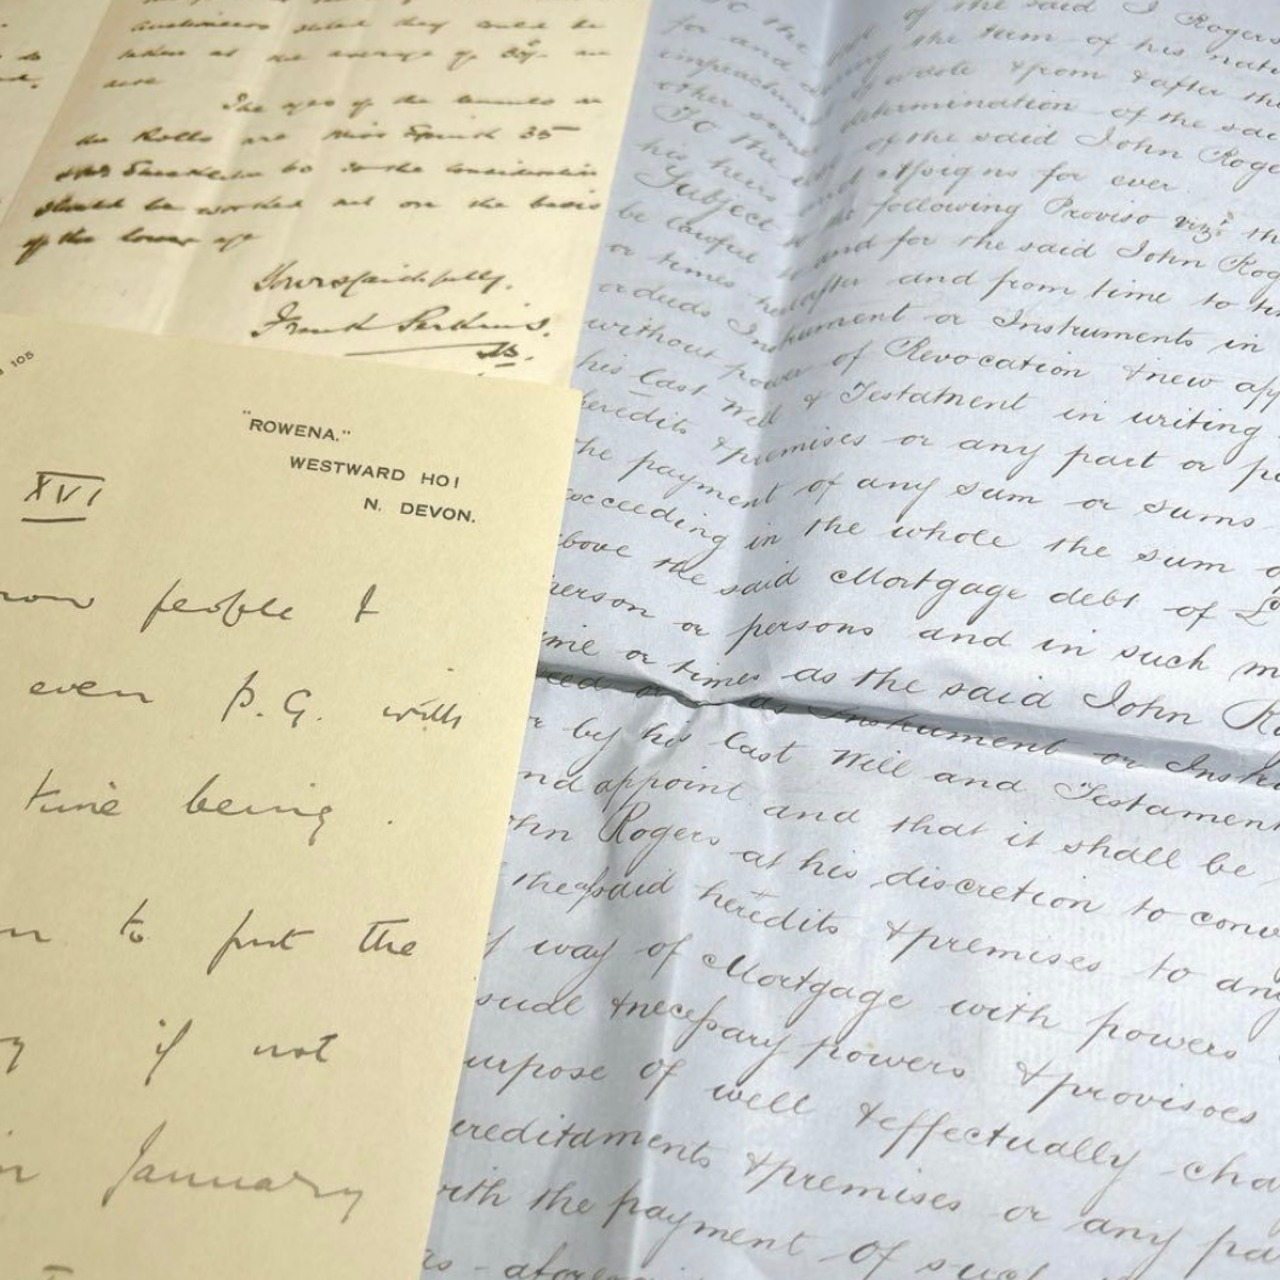 Auctioneers stated they could be
taken at an average of 80/- an
acre
The ages of the
the Rolls are Miss 35
60 so the consideration
should be worked out on the basis
of the lower age
Yours faithfully,
Frank Perkins.
105
"ROWENA."
WESTWARD HO!
N. DEVON.
XVI
people I
even P.G. with
time being.
to put the
if not
in January
To the of the said J Rogers
for and during the term of his natu
impeachm waste & from & after the
other determination of the sai
To the of the said John Roge
his heirs and Assigns for ever.
Subject to the following Proviso vizt. tha
be lawful to and for the said John Rog
or times hereafter and from time to ti
or deeds Instrument or Instruments in
without power of Revocation & new app
his last Will & Testament in writing
heredits & premises or any part or pa
the payment of any sum or sums
exceeding in the whole the sum of
above the said Mortgage debt of £
person or persons and in such m
time or times as the said John Ro
deed or Instrument or Instru
or by his last Will and Testament
and appoint and that it shall be
John Rogers at his discretion to conv
the said heredits & premises to any
by way of Mortgage with powers
usual & necessary powers & provisoes
purpose of well & effectually cha
hereditaments & premises or any pa
with the payment of such
as afores